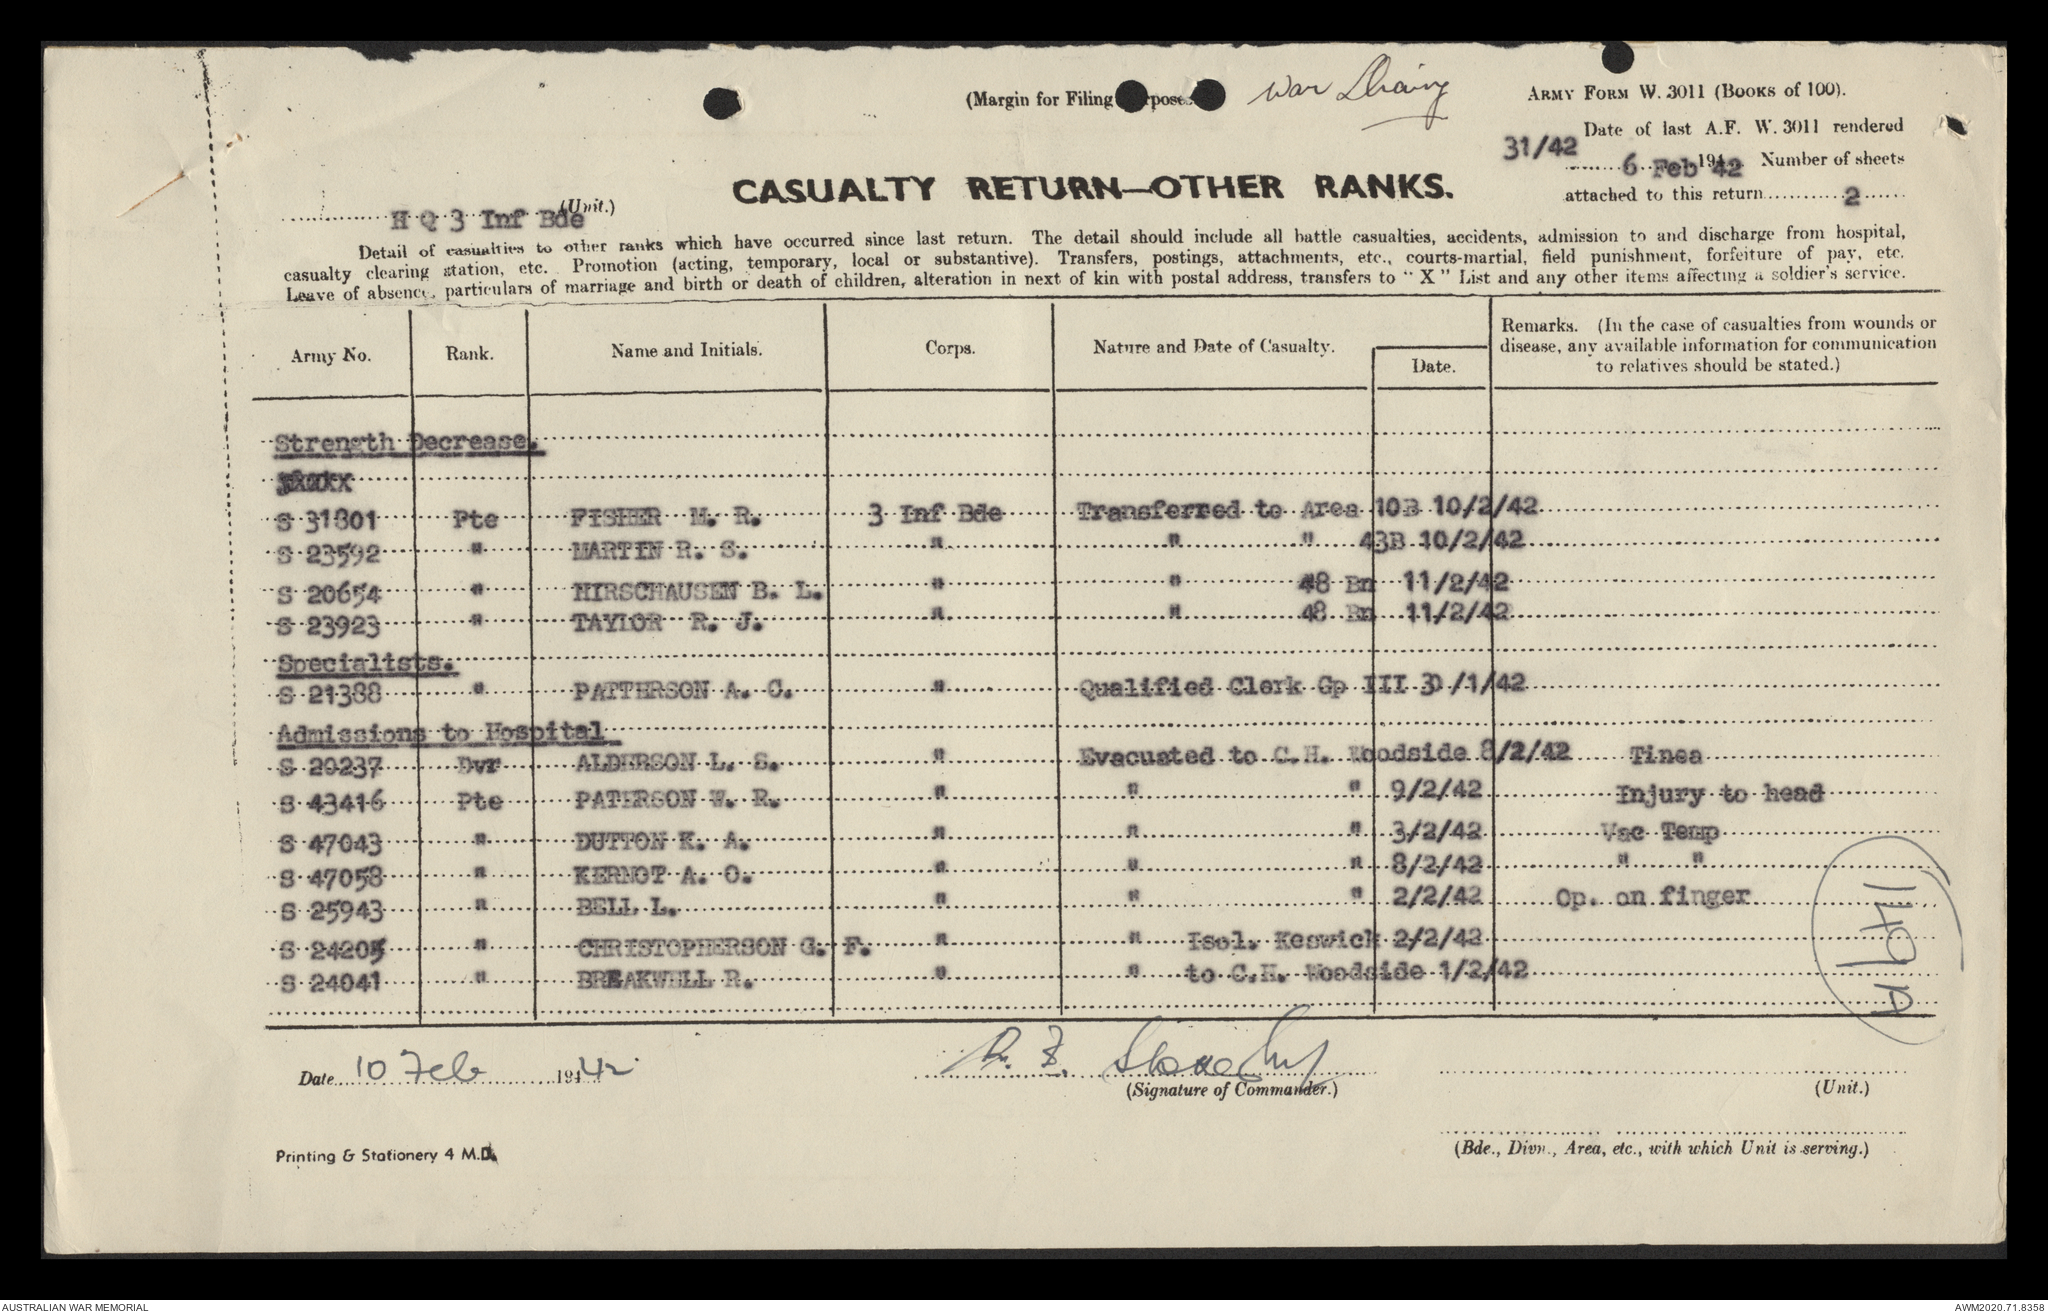 (Margin for Filing
War Diary
ARMY FORM W. 3011 (BOOKS of 100).
Date of last A.F. W. 3011 rendered
31/42
6 Feb 1942 Number of sheets
attached to this return 2
CASUALTY RETURN—OTHER RANKS.
H Q 3 Inf Bde (Unit.)
Detail of casualties to other ranks which have occurred since last return. The detail should include all battle casualties, accidents, admission to and discharge from hospital,
casualty clearing station, etc. Promotion (acting, temporary, local or substantive). Transfers, postings, attachments, etc., courts-martial, field punishment, forfeiture of pay, etc.
Leave of absence, particulars of marriage and birth or death of children, alteration in next of kin with postal address, transfers to "X" List and any other items affecting a soldier's service.
Army No. Rank. Name and Initials. Corps. Nature and Date of Casualty. Date. Remarks. (In the case of casualties from wounds or
disease, any available information for communication
to relatives should be stated.)
Strength Decrease.
S 31801 Pte FISHER M. R. 3 Inf Bde Transferred to Area 10B 10/2/42
S 23592 " MARTIN R. S. " " " 43B 10/2/42
S 20654 " HIRSCHAUSEN B. L. " " 48 Bn 11/2/42
S 23923 " TAYLOR R. J. " " 48 Bn 11/2/42
Specialists.
S 21388 " PATTERSON A. C. " Qualified Clerk Gp III 30/1/42
Admissions to Hospital
S 20237 Dvr ALDERSON L. S. " Evacuated to C.H. Woodside 8/2/42 Tinea
S 43416 Pte PATERSON W. R. " " " 9/2/42 Injury to head
S 47043 " DUTTON K. A. " " " 3/2/42 Vac Temp
S 47058 " KERNOT A. O. " " " 8/2/42 " "
S 25943 " BELL L. " " 2/2/42 Op. on finger
S 24205 " CHRISTOPHERSON G. F. " " Isol. Keswick 2/2/42
S 24041 " BREAKWELL R. " " to C.H. Woodside 1/2/42
149A
Date 10 Feb 1942
(Signature of Commander.)
(Unit.)
Printing & Stationery 4 M.D.
(Bde., Divn., Area, etc., with which Unit is serving.)
AUSTRALIAN WAR MEMORIAL
AWM2020.71.8358